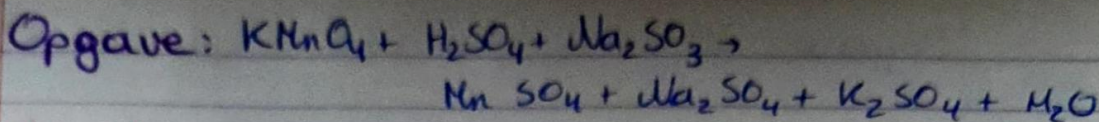 Opgave: KMnO₄ + H₂SO₄ + Na₂SO₃ →
Mn SO₄ + Na₂SO₄ + K₂SO₄ + H₂O